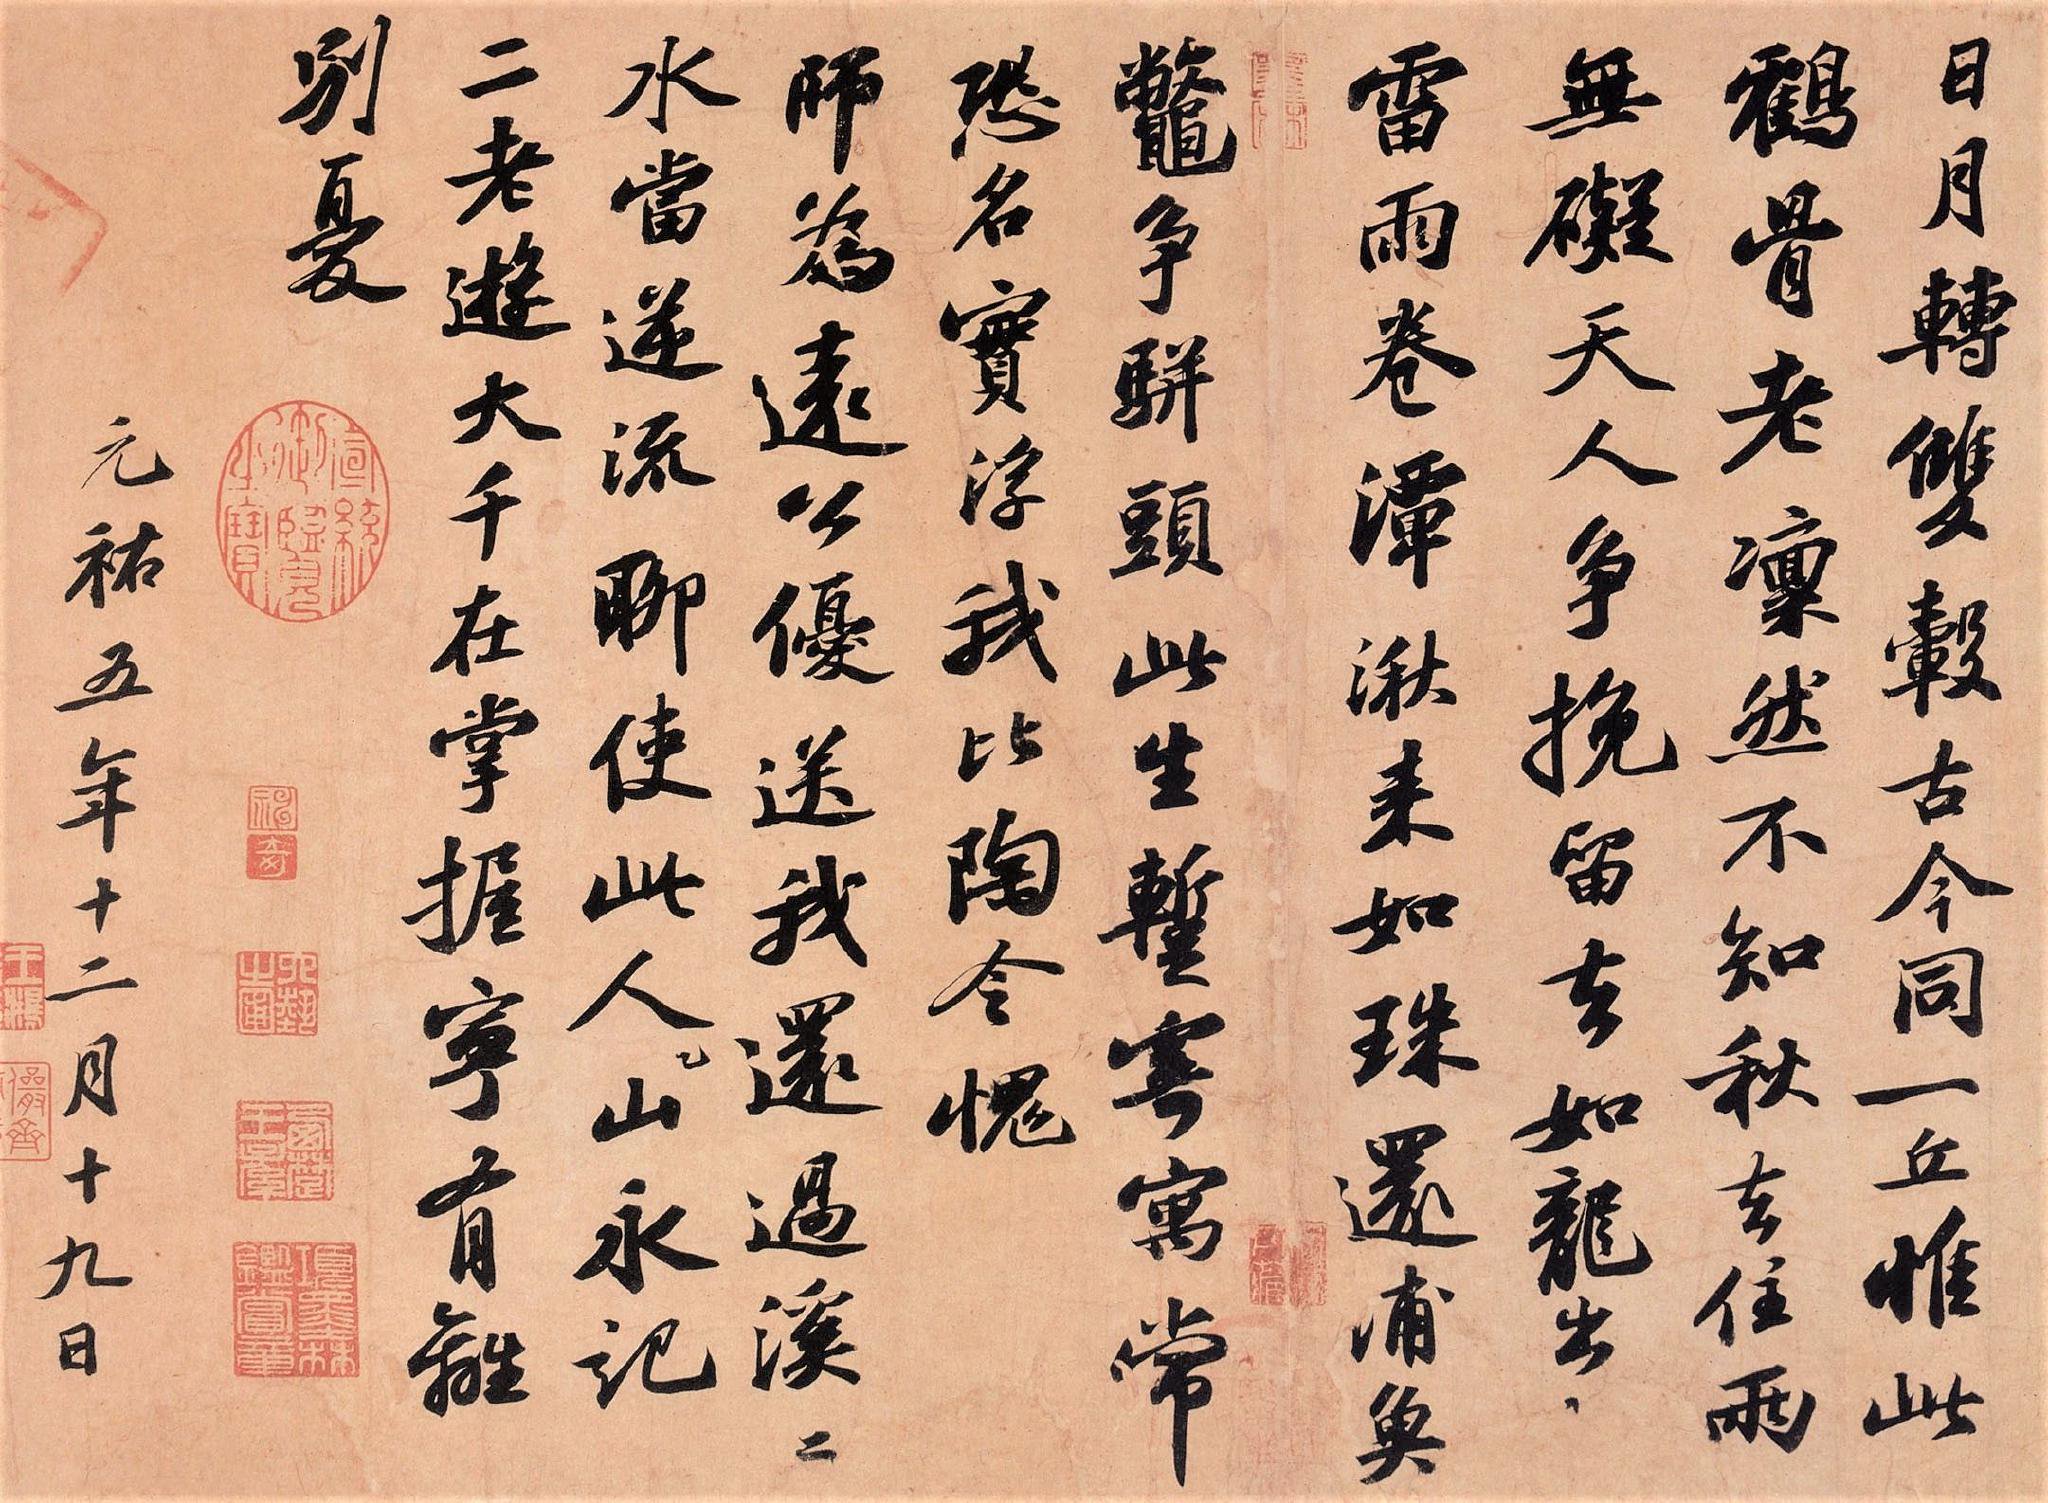 日月轉雙轂古今同一丘惟此
鶴骨老凜然不知秋去住兩
無礙天人争挽留去如龍出
雷雨卷潭湫来如珠還浦魚
鼈争駢頭此生暫寄寓常
恐名實浮我比陶令愧
師為遠公優送我還過溪〻
水當逆流聊使此人山永記
二老遊大千在掌握寧有離
別憂
元祐五年十二月十九日